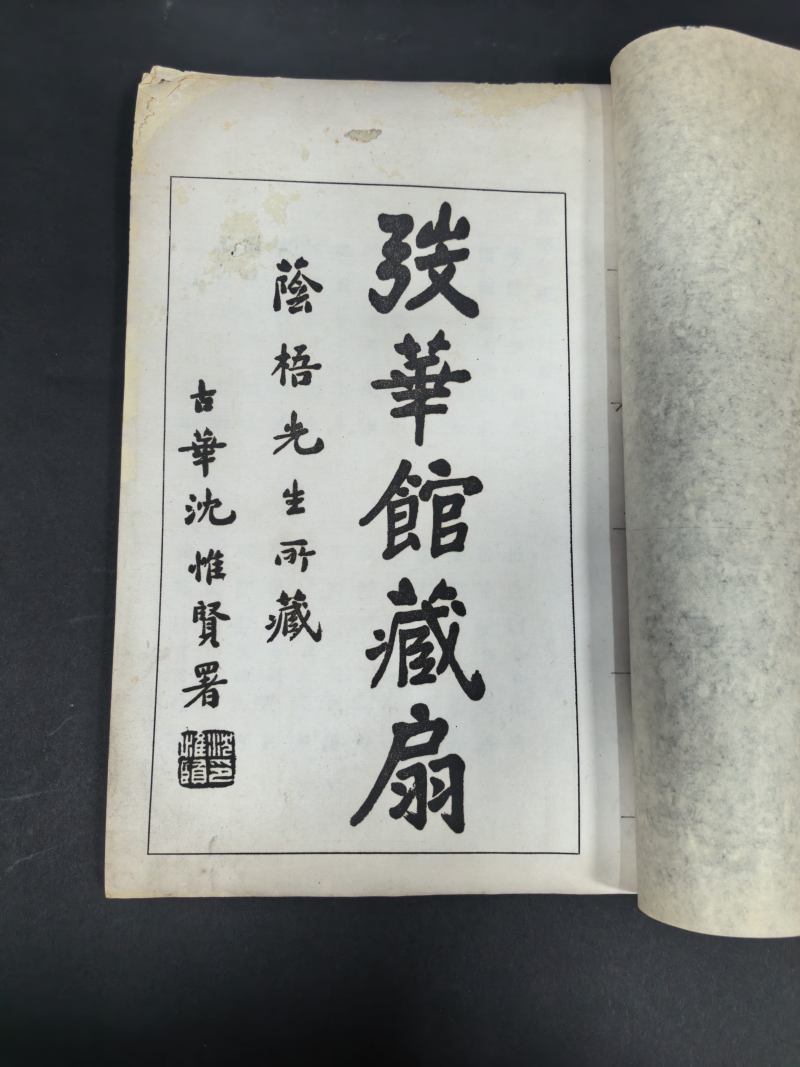 弢華館藏扇
蔭梧先生所藏
古華沈惟賢署
沈印惟賢